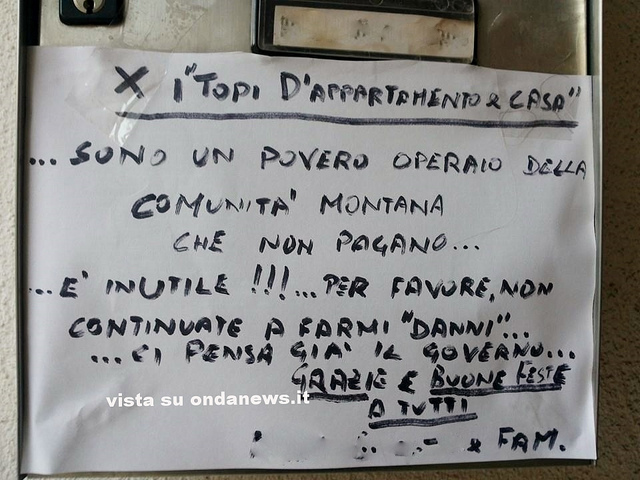 X I "TOPI D'APPARTAMENTO & CASA"
... SONO UN POVERO OPERAIO DELLA
COMUNITA' MONTANA
CHE NON PAGANO...
... E' INUTILE !!!... PER FAVORE, NON
CONTINUATE A FARMI "DANNI"...
... CI PENSA GIA' IL GOVERNO...
GRAZIE E BUONE FESTE
A TUTTI
& FAM.
vista su ondanews.it